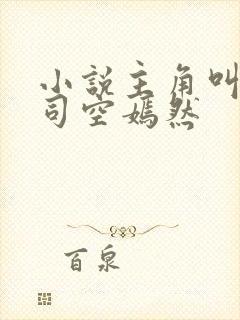 小説主角叫
司空嫣然
百泉